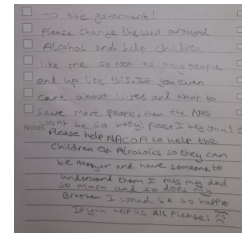 To the government!
Please change the law around
Alcohol and help children
like me so not as many people
end up like this. Do you even
care about lives and want to
save more people, then the NHS
wont be so busy! please I beg you!
Notes
Please help NACOA to help the
Children Of Alcoholics so they can
be and have someone to
understand them I miss my dad
so much and so does my
Brother I would be so happy
if you help us All Please!